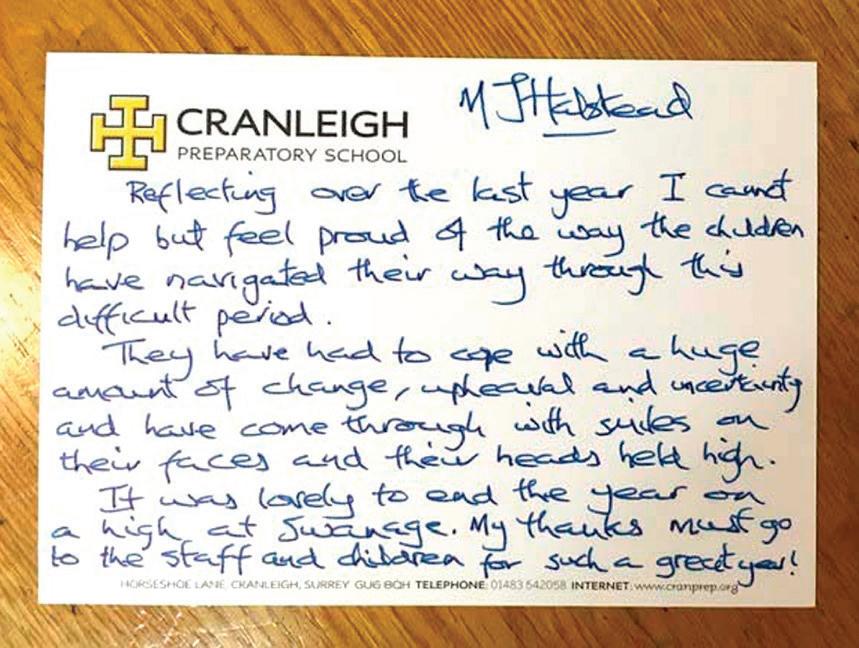 M J Halstead
CRANLEIGH
PREPARATORY SCHOOL
Reflecting over the last year I cannot
help but feel proud of the way the children
have navigated their way through this
difficult period.
They have had to cope with a huge
amount of change, upheaval and uncertainty
and have come through with smiles on
their faces and their heads held high.
It was lovely to end the year on
a high at Swanage. My thanks must go
to the staff and children for such a great year!
HORSESHOE LANE, CRANLEIGH, SURREY GU6 8QH TELEPHONE: 01483 542058 INTERNET: www.cranprep.org